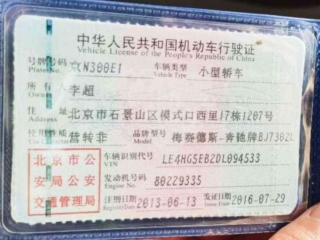 中华人民共和国机动车行驶证
Vehicle License of the People's Republic of China
号牌号码 京N300E1 车辆类型 小型轿车
Plate No. Vehicle Type
所有人 李超
住址 北京市石景山区模式口西里17栋1207号
使用性质 营转非 品牌型号 梅赛德斯-奔驰牌BJ7302L
北京市公安局公安交通管理局
车辆识别代号 LE4HG5EB2DL094533
VIN
发动机号码 80229335
Engine No.
注册日期 2013-06-13 发证日期 2016-07-29